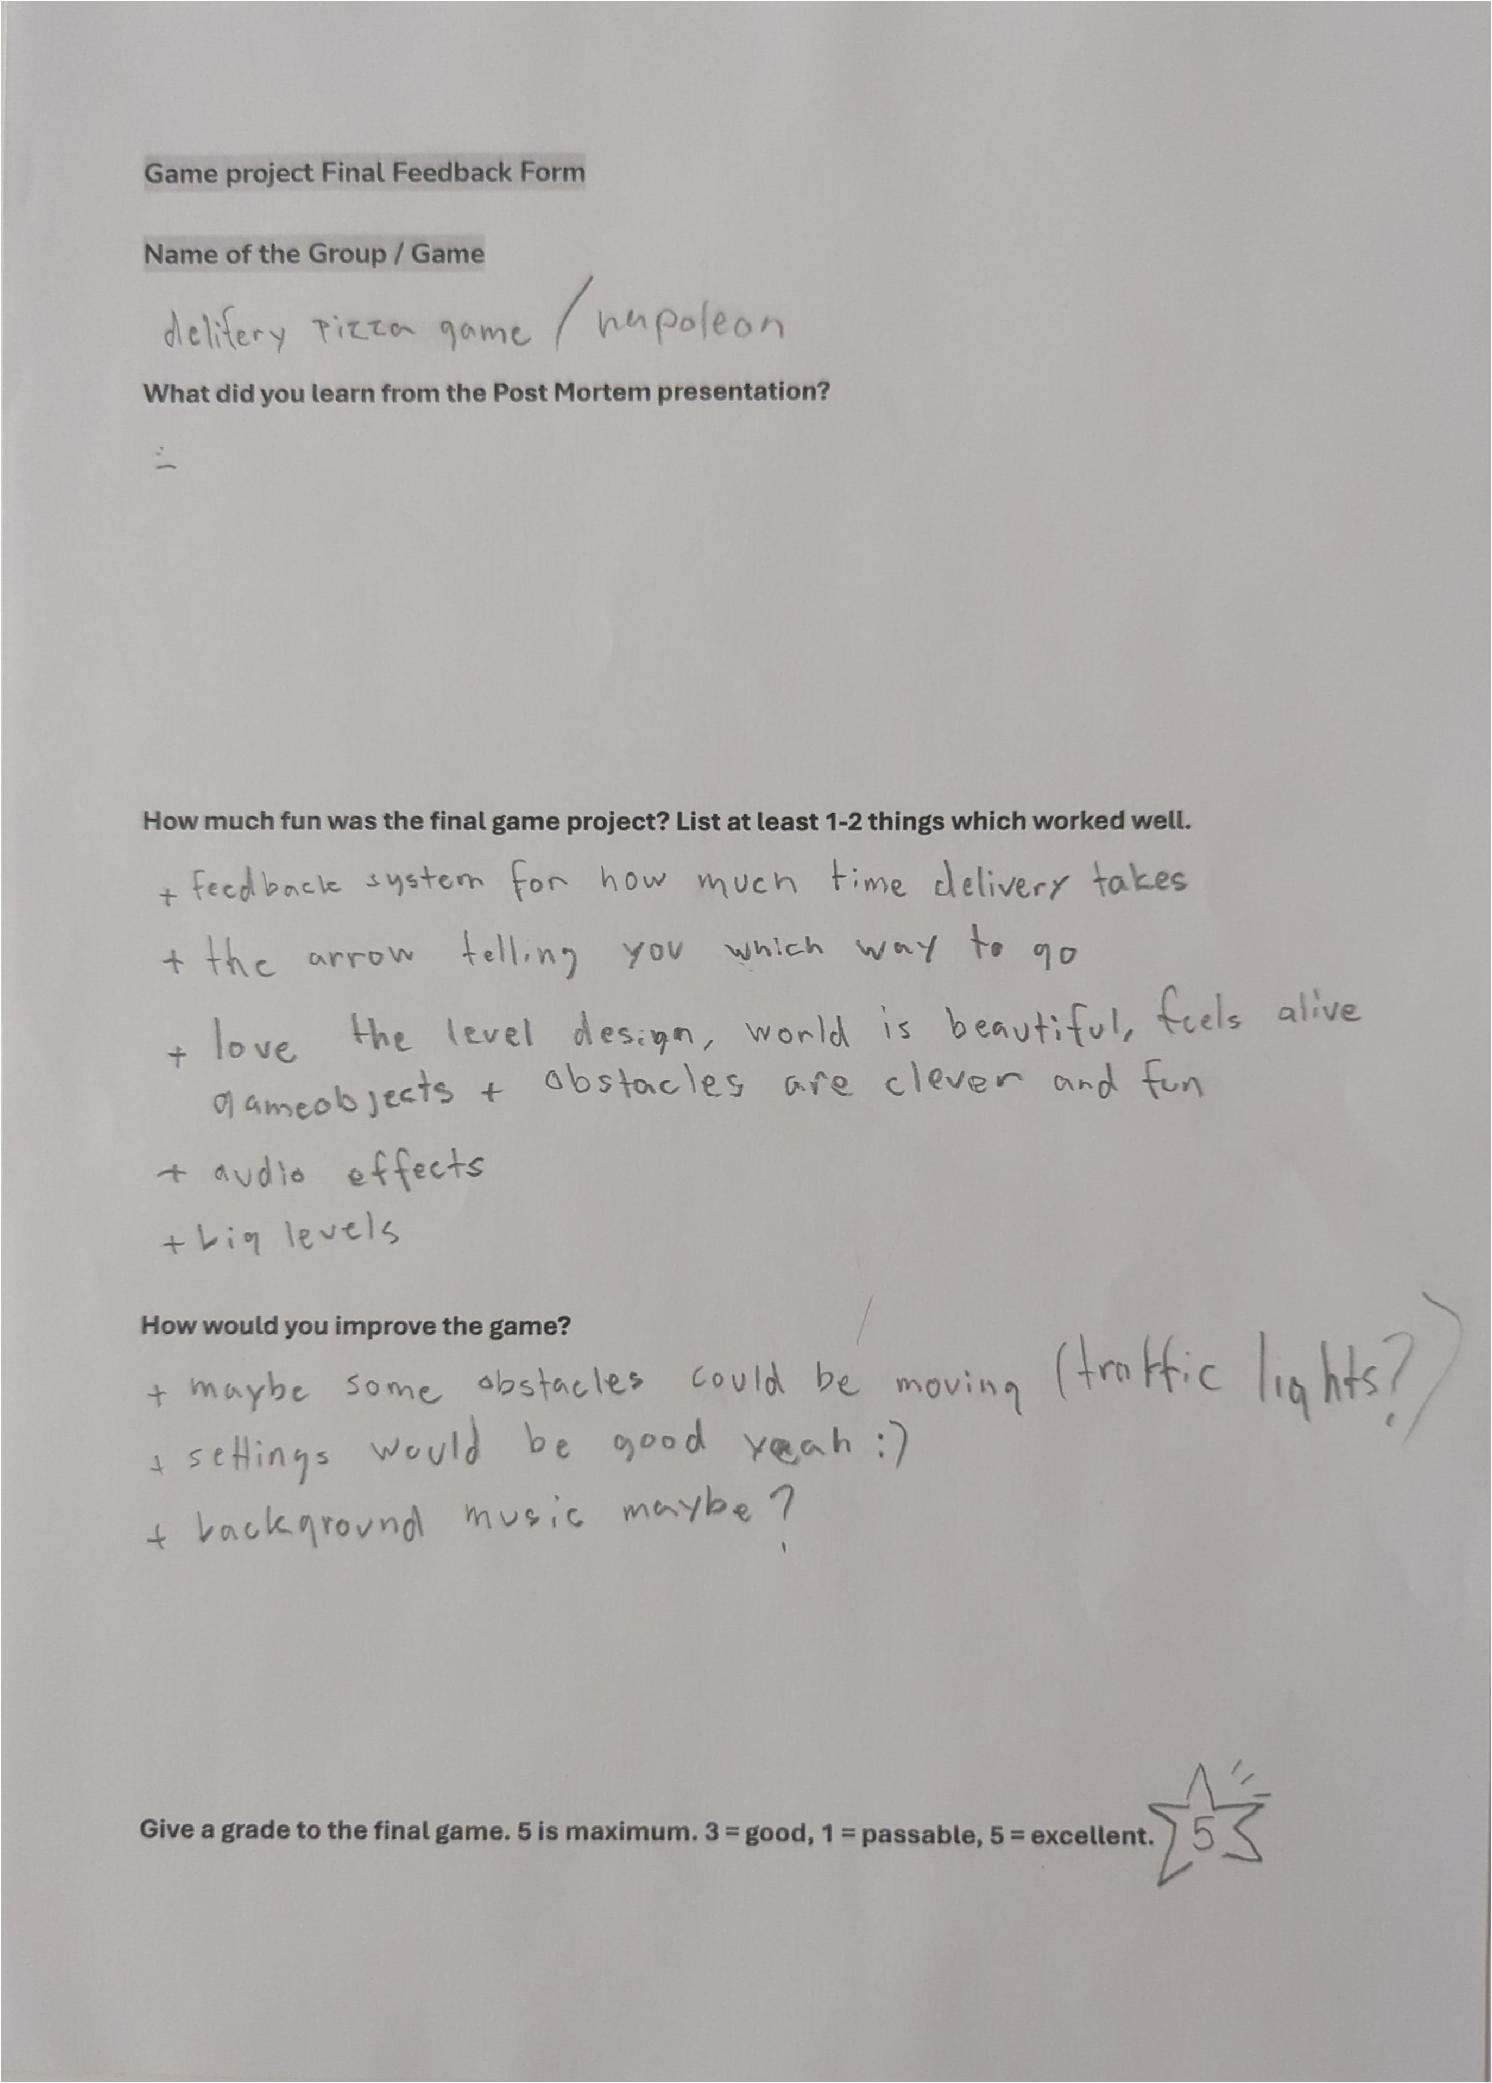 Game project Final Feedback Form
Name of the Group / Game
delifery pizza game / napoleon
What did you learn from the Post Mortem presentation?
How much fun was the final game project? List at least 1-2 things which worked well.
+ feedback system for how much time delivery takes
+ the arrow telling you which way to go
+ love the level design, world is beautiful, feels alive
gameobjects + obstacles are clever and fun
+ audio effects
+ big levels
How would you improve the game?
+ maybe some obstacles could be moving (traffic lights?)
+ settings would be good yeah :)
+ background music maybe?
Give a grade to the final game. 5 is maximum. 3 = good, 1 = passable, 5 = excellent. 5